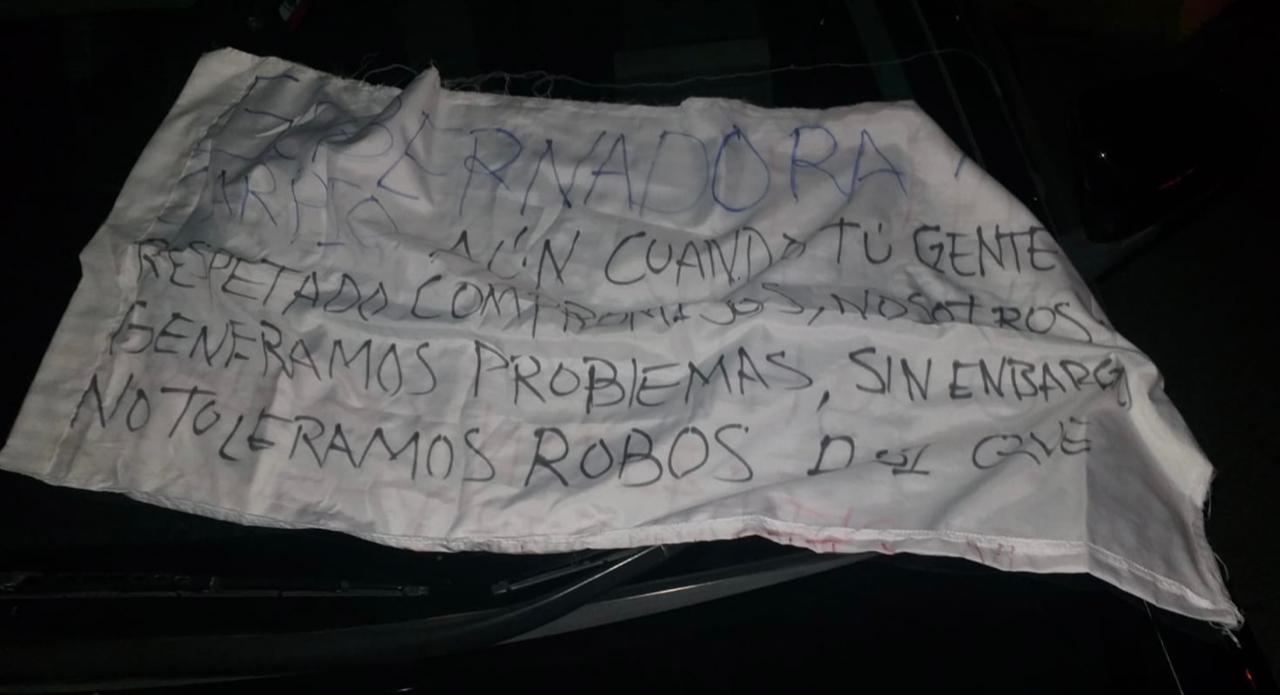 GOBERNADORA
AÚN CUANDO TÚ GENTE
RESPETADO COMPROMISOS, NOSOTROS
GENERAMOS PROBLEMAS, SIN ENBARG
NO TOLERAMOS ROBOS QUE